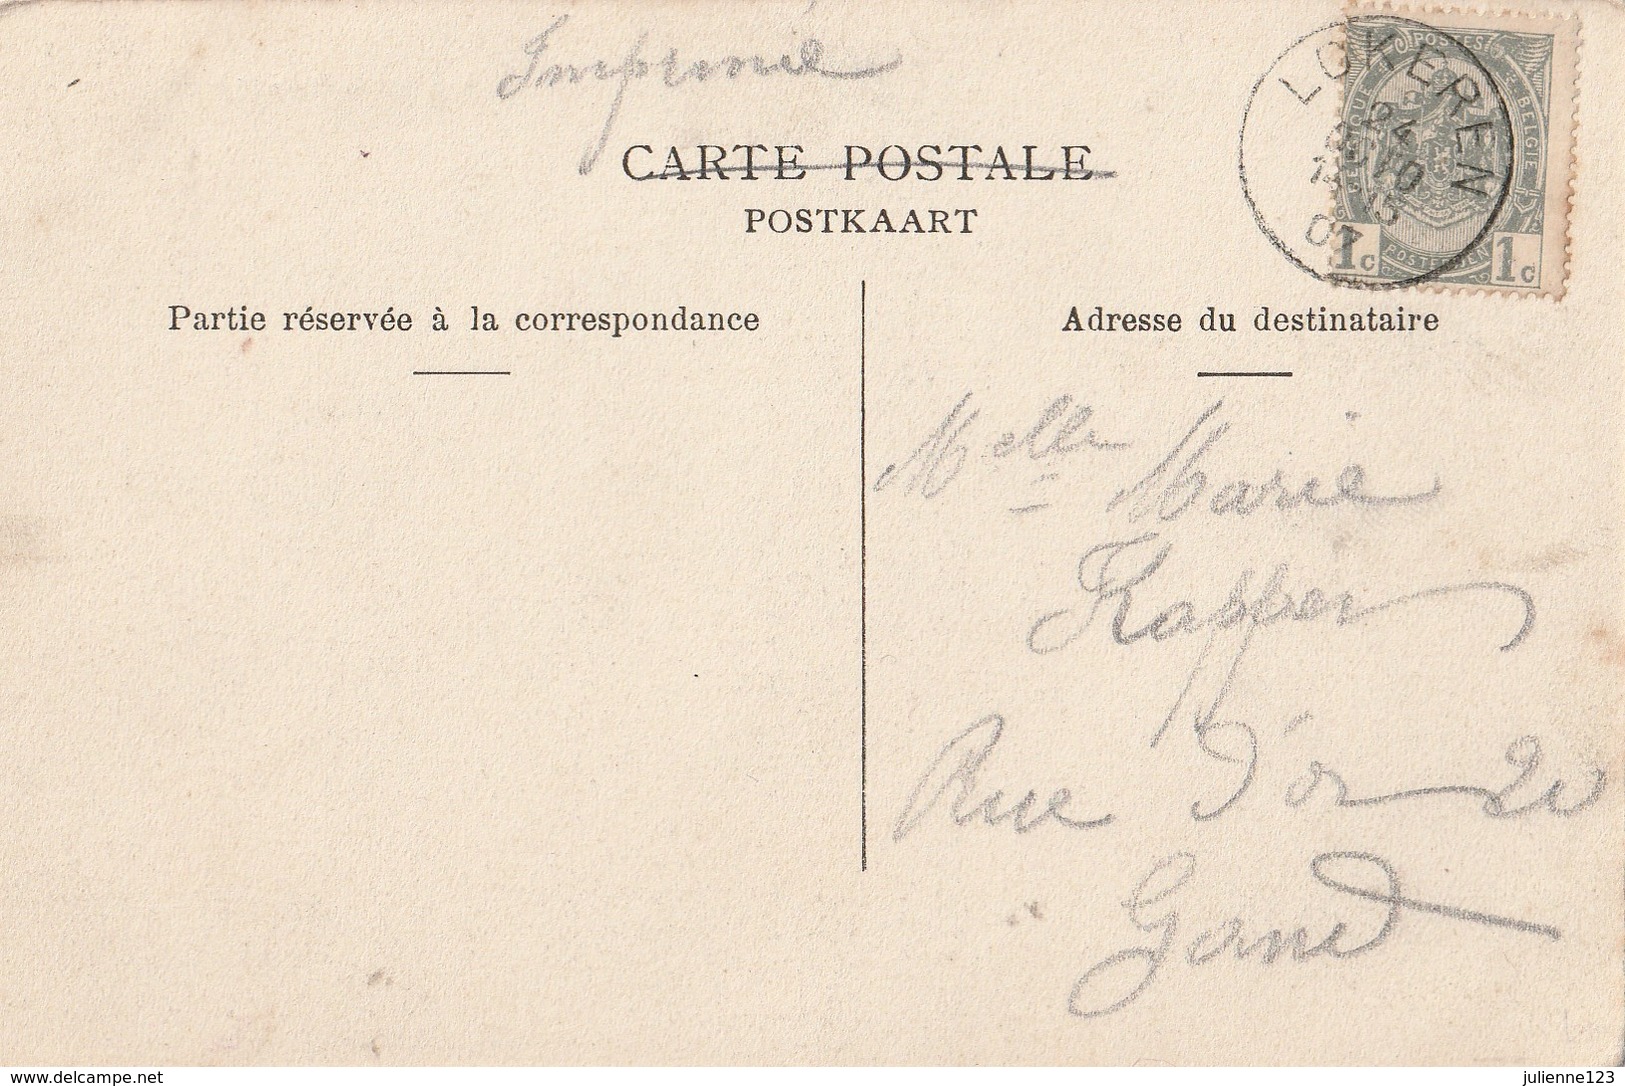 Imprimé
CARTE POSTALE
POSTKAART
LOKEREN
24
14 15
07
POSTES
BELGIQUE
BELGIE
POSTERIJEN
1c 1c
Partie réservée à la correspondance
Adresse du destinataire
Melle Marie
Rue d'or 20
Gand
www.delcampe.net
julienne123